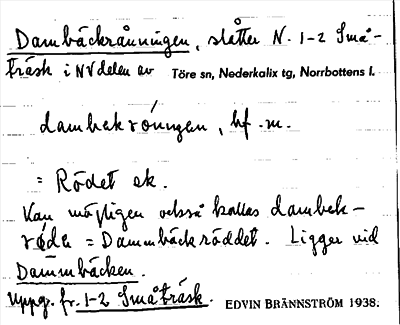 Dambäckrånningen, slåtter N. 1-2 Små-
träsk i NV delen av Töre sn, Nederkalix tg, Norrbottens l.
dambekróningen, bf. m.
= Rödet ek.
Kan möjligen också kallas dambek-
röda = Dammbäcksröddet. Ligger vid
Dammbäcken.
Uppg. fr. 1-2 Småträsk. EDVIN BRÄNNSTRÖM 1938.